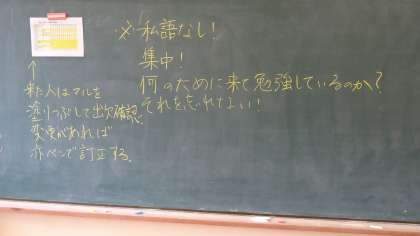 ※私語なし!
集中!
何のために来て勉強しているのか?
それを忘れない!
↑
来た人はマルを
塗りつぶして出欠確認。
変更があれば
赤ペンで訂正する。